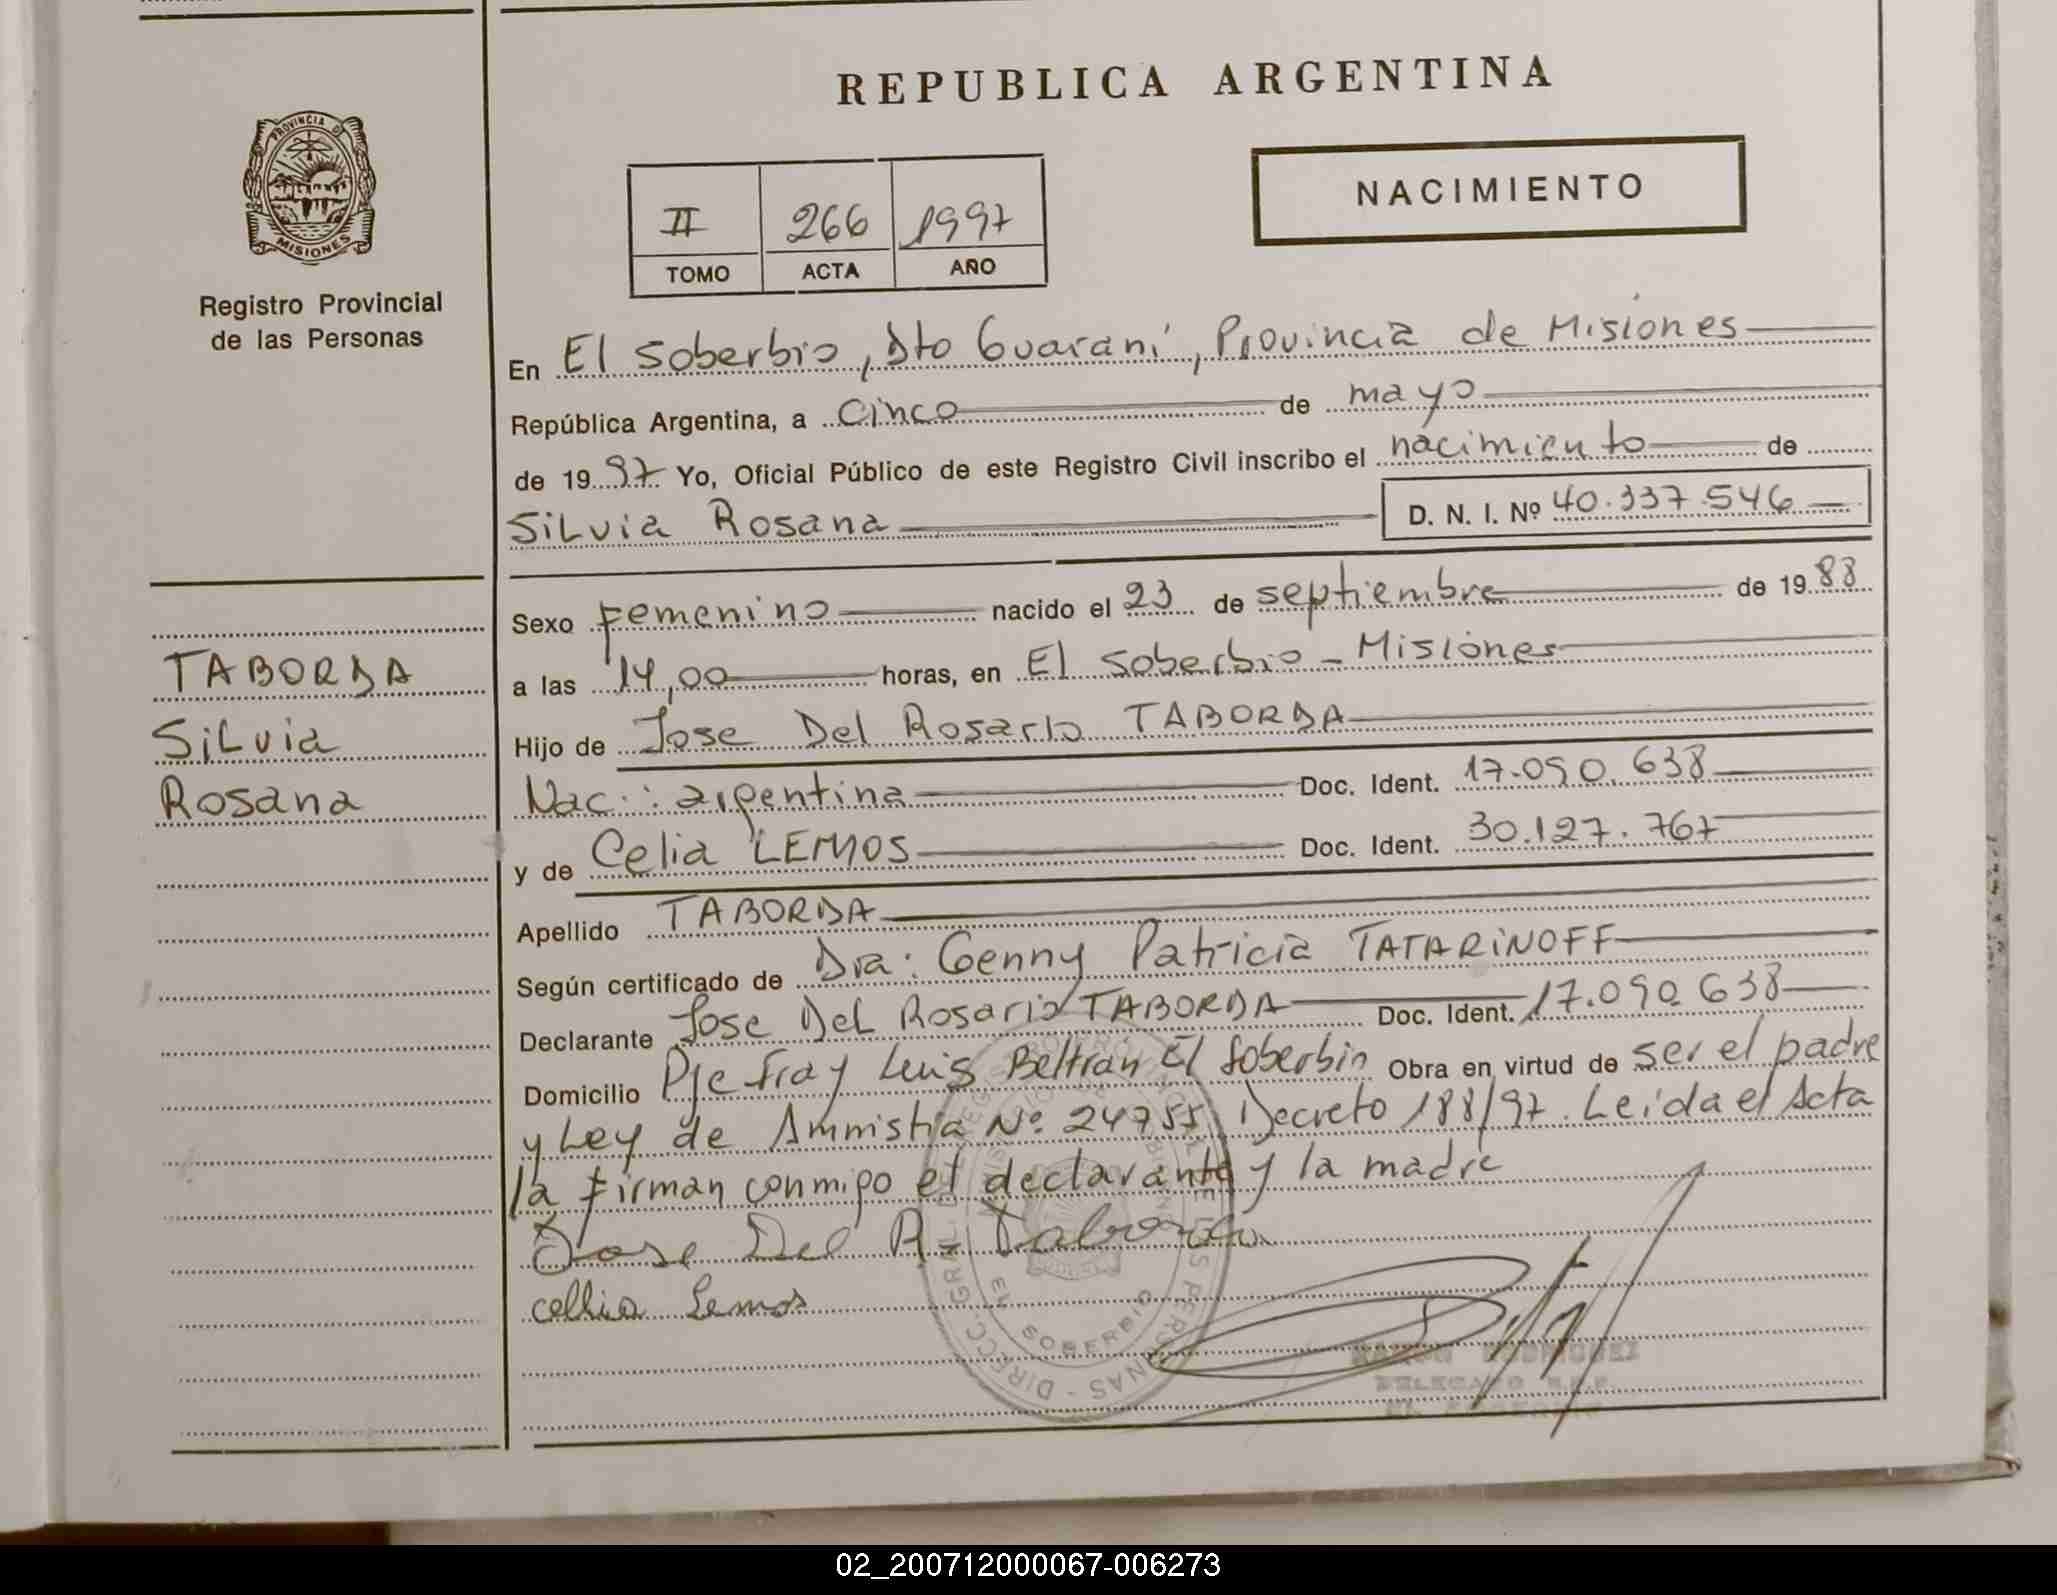 REPUBLICA ARGENTINA
PROVINCIA DE
MISIONES
Registro Provincial
de las Personas
NACIMIENTO
II 266 1997
TOMO ACTA AÑO
En El Soberbio, Dto Guaraní, Provincia de Misiones
República Argentina, a Cinco de mayo
de 1997 Yo, Oficial Público de este Registro Civil inscribo el nacimiento de
Silvia Rosana D. N. I. Nº 40.337.546
Sexo Femenino nacido el 23 de septiembre de 1988
a las 14,00 horas, en El Soberbio - Misiones
Hijo de Jose Del Rosario TABORDA
Nac.: argentina Doc. Ident. 17.090.638
y de Celia LEMOS Doc. Ident. 30.127.767
Apellido TABORDA
Según certificado de Dra: Genny Patricia TATARINOFF
Declarante Jose Del Rosario TABORDA Doc. Ident. 17.090.638
Domicilio Pje Fray Luis Beltran El Soberbio Obra en virtud de ser el padre
y Ley de Amnistia Nº 24755, Decreto 188/97. Leída el Acta
la firman conmigo el declarante y la madre
Jose Del R. Taborda
cellia Lemos
TABORDA
Silvia
Rosana
EL SOBERBIO
RAMON RODRIGUEZ
DELEGADO
EL SOBERBIO
02_200712000067-006273